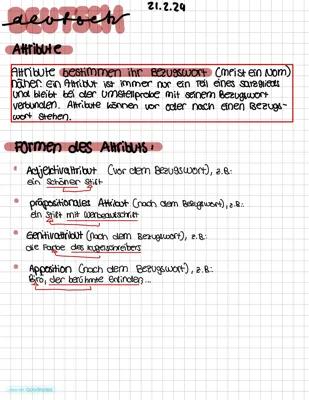 21.2.24
DEUTSCH
deutsch
Attribute
Attribute bestimmen ihr Bezugswort (meist ein Nom)
näher: ein Attribut ist immer nur ein Teil eines Satzglieds
und bleibt bei der Umstellprobe mit seinem Bezugswort
verbunden. Attribute können vor oder nach einen Bezugs-
wort stehen.
Formen des Attributs:
Adjektivattribut (vor dem Bezugswort), z.B.:
ein schöner Stift
präpositionales Attribut (nach dem Bezugswort), z.B.:
ein Stift mit Werbeaufschrift
Genitivattribut (nach dem Bezugswort), z.B.:
die Farbe des Kugelschreibers
Apposition (nach dem Bezugswort), z.B.:
Biro, der berühmte Erfinder...